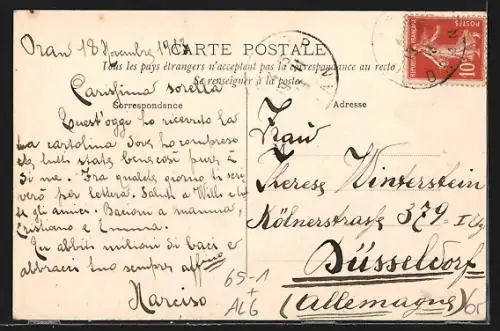 Oran 18 Novembre
CARTE POSTALE
Tous les pays étrangers n'acceptent pas la correspondance au recto
Se renseigner à la poste
Correspondance
Carissima sorella
Quest'oggi ho ricevuto la
tua cartolina dove ho compreso
che tutti state bene così pure è
di me. Fra qualche giorno ti scri
verò per lettera. Saluti a Willi e
gli amici. Bacioni a mamma,
Cristiano e Emma.
Tu abbiti milioni di baci e
abbracci tuo sempre affino
Narciso
Adresse
Frau
Therese Winterstein
Kölnerstrasse 379 - I Etg
Düsseldorf
(Allemagne)
65-1
+
ALG
REPUBLIQUE FRANÇAISE
POSTES
10
ORAN